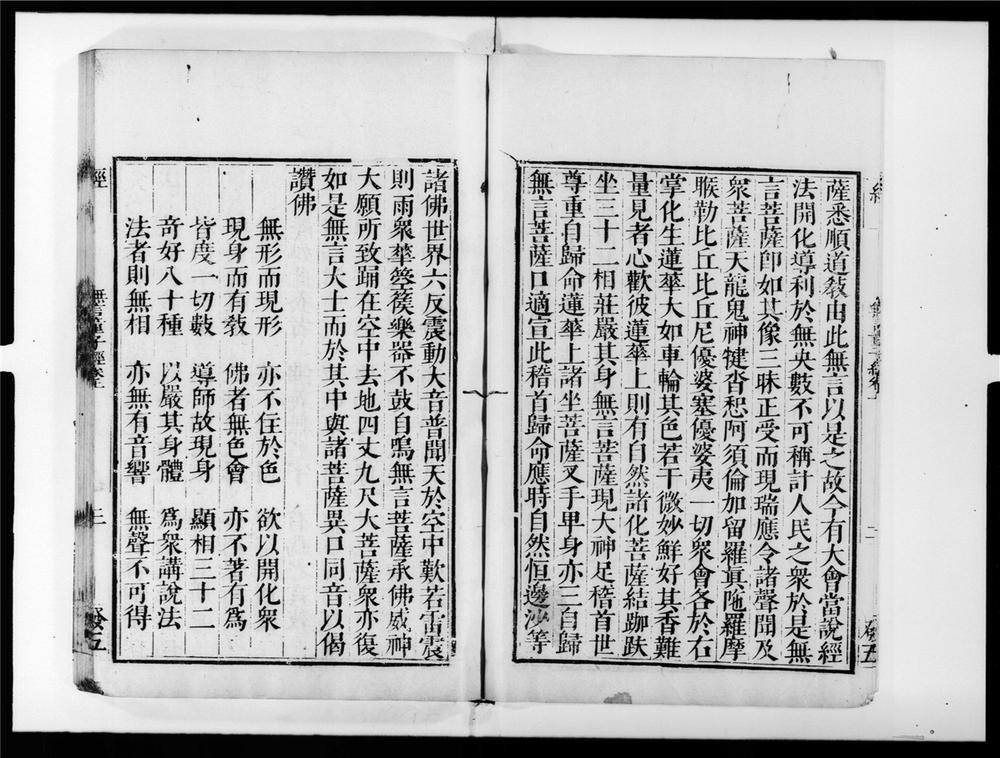 薩悉順道敎由此無言以是之故今有大會當說經
法開化導利於無央數不可稱計人民之衆於是無
言菩薩卽如其像三昧正受而現瑞應令諸聲聞及
衆菩薩天龍鬼神犍沓惒阿須倫加留羅眞陁羅摩
睺勒比丘比丘尼優婆塞優婆夷一切衆會各於右
掌化生蓮華大如車輪其色若干微妙鮮好其香難
量見者心歡彼蓮華上則有自然諸化菩薩結跏趺
坐三十二相莊嚴其身無言菩薩現大神足稽首世
尊重自歸命蓮華上諸坐菩薩叉手畢身亦三自歸
無言菩薩口適宣此稽首歸命應時自然恒邊沙等
諸佛世界六反震動大音普聞天於空中歎若雷震
則雨衆華箜篌樂器不鼓自鳴無言菩薩承佛威神
大願所致踊在空中去地四丈九尺大菩薩衆亦復
如是無言大士而於其中與諸菩薩異口同音以偈
讚佛
無形而現形　亦不住於色　欲以開化衆
現身而有敎　佛者無色會　亦不著有爲
皆度一切數　導師故現身　顯相三十二
奇好八十種　以嚴其身體　爲衆講說法
法者則無相　亦無有音響　無聲不可得
經　無言童子經卷上　二　發五